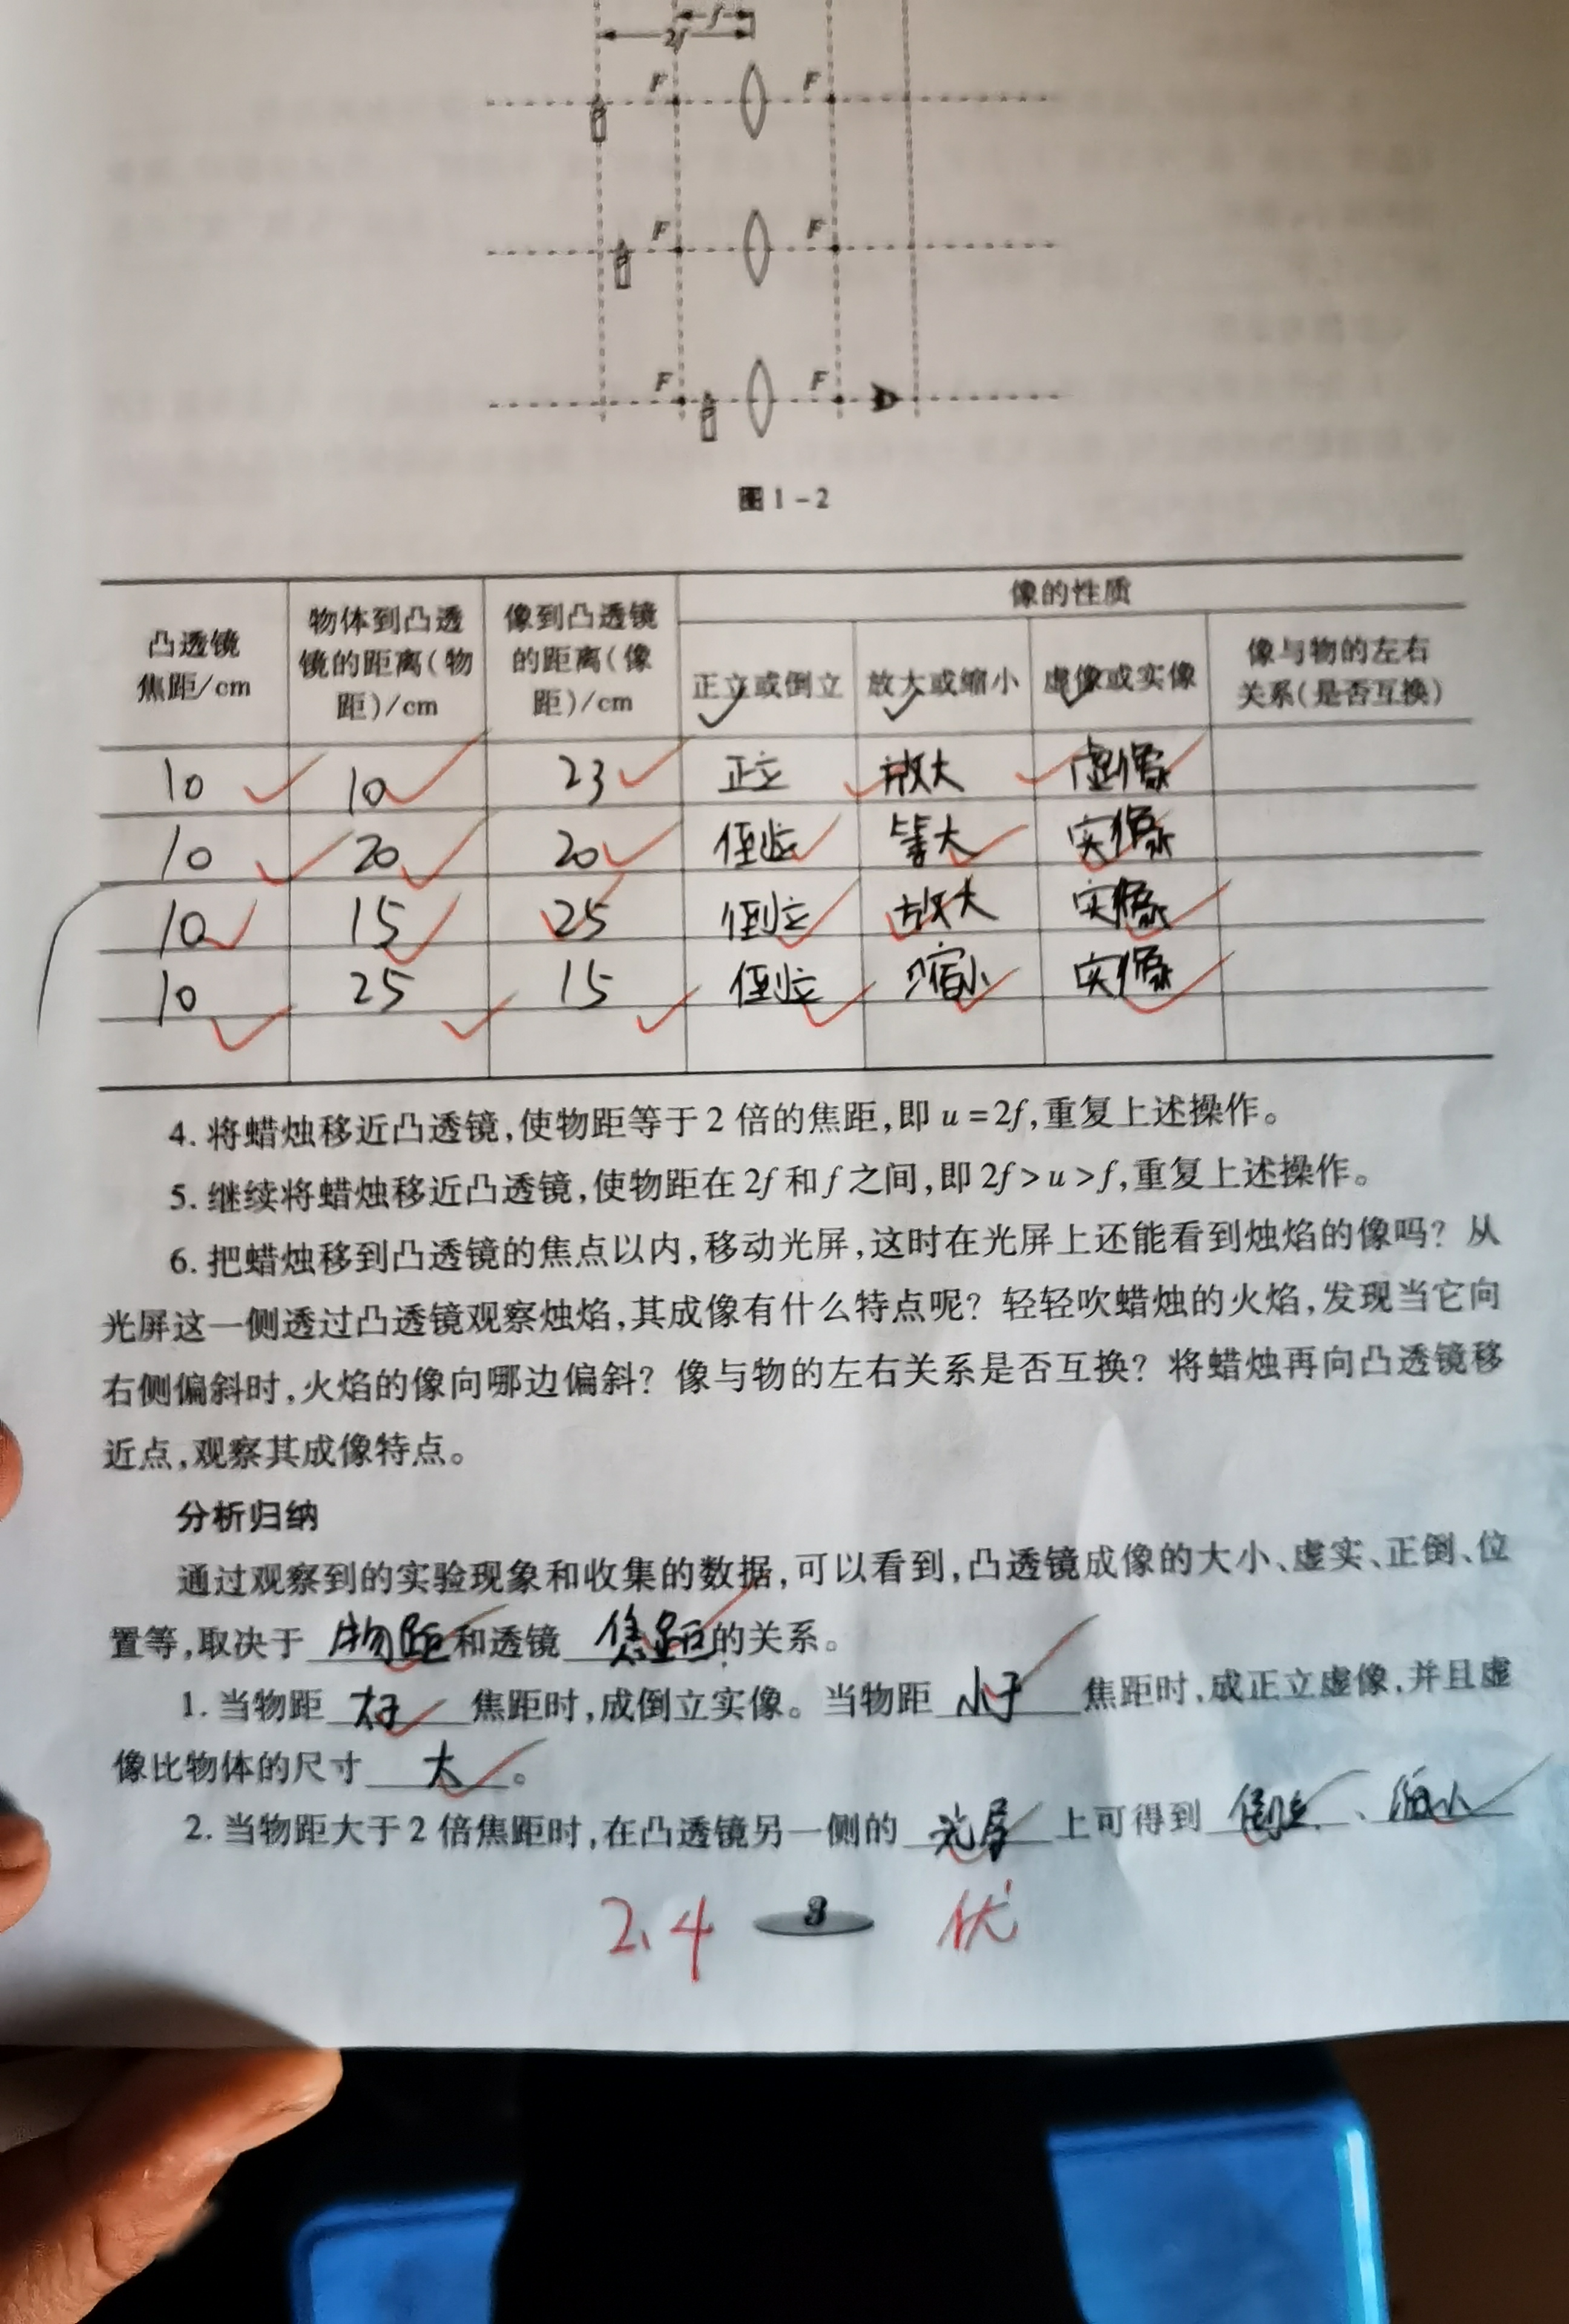 f
2f
F F
F F
F F
图1-2
凸透镜焦距/cm 物体到凸透镜的距离(物距)/cm 像到凸透镜的距离(像距)/cm 像的性质
正立或倒立 放大或缩小 虚像或实像 像与物的左右关系(是否互换)
10 10 23 正立 放大 虚像
10 20 20 倒立 等大 实像
10 15 25 倒立 放大 实像
10 25 15 倒立 缩小 实像
4. 将蜡烛移近凸透镜,使物距等于2倍的焦距,即u=2f,重复上述操作。
5. 继续将蜡烛移近凸透镜,使物距在2f和f之间,即2f>u>f,重复上述操作。
6. 把蜡烛移到凸透镜的焦点以内,移动光屏,这时在光屏上还能看到烛焰的像吗? 从
光屏这一侧透过凸透镜观察烛焰,其成像有什么特点呢? 轻轻吹蜡烛的火焰,发现当它向
右侧偏斜时,火焰的像向哪边偏斜? 像与物的左右关系是否互换? 将蜡烛再向凸透镜移
近点,观察其成像特点。
分析归纳
通过观察到的实验现象和收集的数据,可以看到,凸透镜成像的大小、虚实、正倒、位
置等,取决于 物距 和透镜 焦距 的关系。
1. 当物距 大于 焦距时,成倒立实像。当物距 小于 焦距时,成正立虚像,并且虚
像比物体的尺寸 大 。
2. 当物距大于2倍焦距时,在凸透镜另一侧的 光屏 上可得到 倒立 、 缩小
2.4 3 优